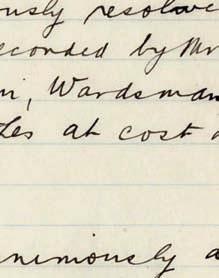 ously resolve
econded by Mr
n, Wardsman
les at cost a
nimiously a